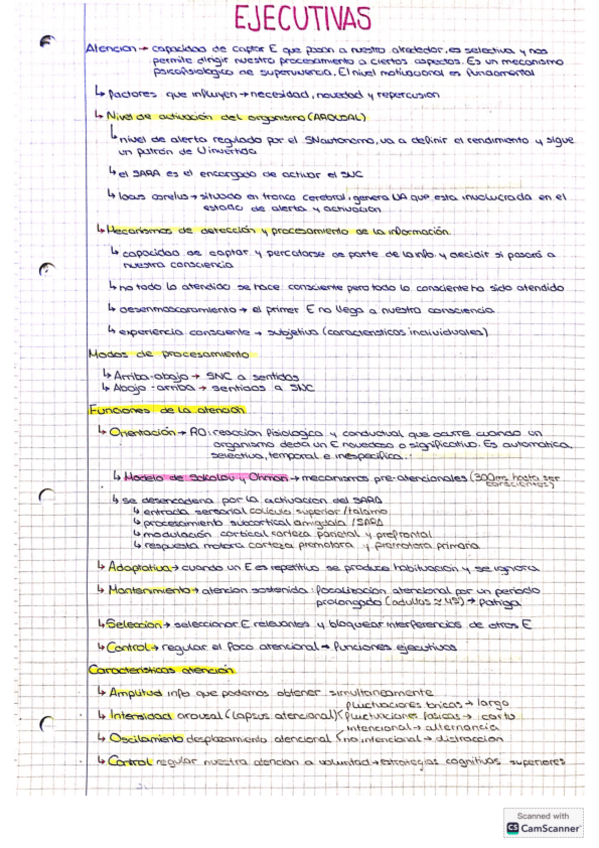 EJECUTIVAS
Atencion → capacidad de captar E que pasan a nuestro alrededor, es selectiva y nos
permite dirigir nuestro procesamiento a ciertos aspectos. Es un mecanismo
psicofisiologico de supervivencia. El nivel motivacional es fundamental
↳ factores que influyen → necesidad, novedad y repercusion
↳ Nivel de activación del organismo (AROUSAL)
↳ nivel de alerta regulado por el SNautonomo, va a definir el rendimiento y sigue
un patrón de U invertida
↳ el SARA es el encargado de activar el SNC
↳ locus corelus → situado en tronco cerebral, genera UA que esta involucrada en el
estado de alerta y activacion
↳ Mecanismos de detección y procesamiento de la información.
↳ capacidad de captar y percatarse de parte de la info. y decidir si pasará a
nuestra consciencia
↳ no todo lo atendido se hace consciente pero todo lo consciente ha sido atendido
↳ desenmascaramiento → el primer E no llega a nuestra consciencia
↳ experiencia consciente → subjetiva (caracteristicas individuales)
Modos de procesamiento
↳ Arriba-abajo → SNC a sentidos
↳ Abajo-arriba → sentidos a SNC
Funciones de la atención
↳ Orientación → RO: reacción fisiologica y conductual que ocurre cuando un
organismo decta un E novedoso o significativo. Es automatica,
selectiva, temporal e inespecifica.
↳ Modelo de Sokolov y Ohman → mecanismos pre-atencionales (300ms hasta ser
conscientes)
↳ se desencadena por la activacion del SARA
↳ entrada sensorial coliculo superior/talamo
↳ procesamiento subcortical amigdala/SARA
↳ modulación cortical corteza parietal y prefrontal
↳ respuesta motora corteza premotora y premotora primaria
↳ Adaptativa → cuando un E es repetitivo se produce habituación y se ignora
↳ Mantenimiento → atencion sostenida: focalización atencional por un periodo
prolongado (adultos ≈ 45) → fatiga
↳ Selección → seleccionar E relevantes y bloquear interferencias de otros E
↳ Control → regular el foco atencional → funciones ejecutivas
Caracteristicas atención
↳ Amplitud info que podemos obtener simultaneamente
↳ Intensidad arousal (lapsus atencional) fluctuaciones tonicas → largo
fluctuaciones fasicas → corto
↳ Oscilamiento desplazamiento atencional intencional → alternancia
no intencional → distraccion
↳ Control regular nuestra atencion a voluntad → estrategias cognitivas superiores
Scanned with
CS CamScanner